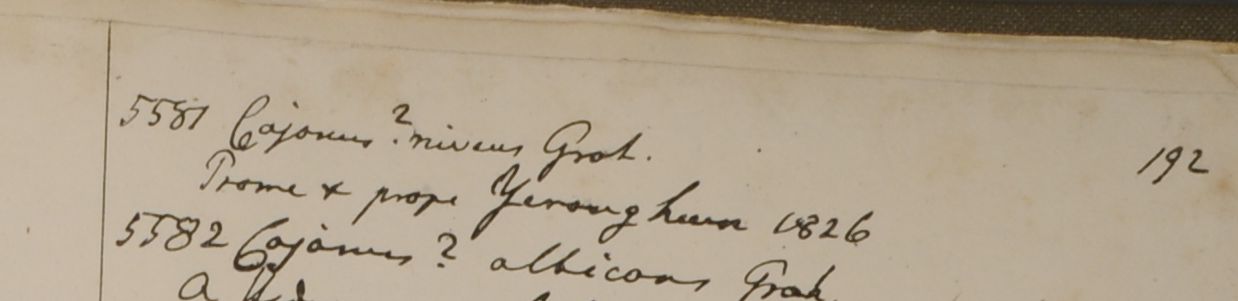 5581 Cajanus ? niveus Grah.
192
Prome & prope Yenanghuen 1826
5582 Cajanus ? albicans Grah.
a